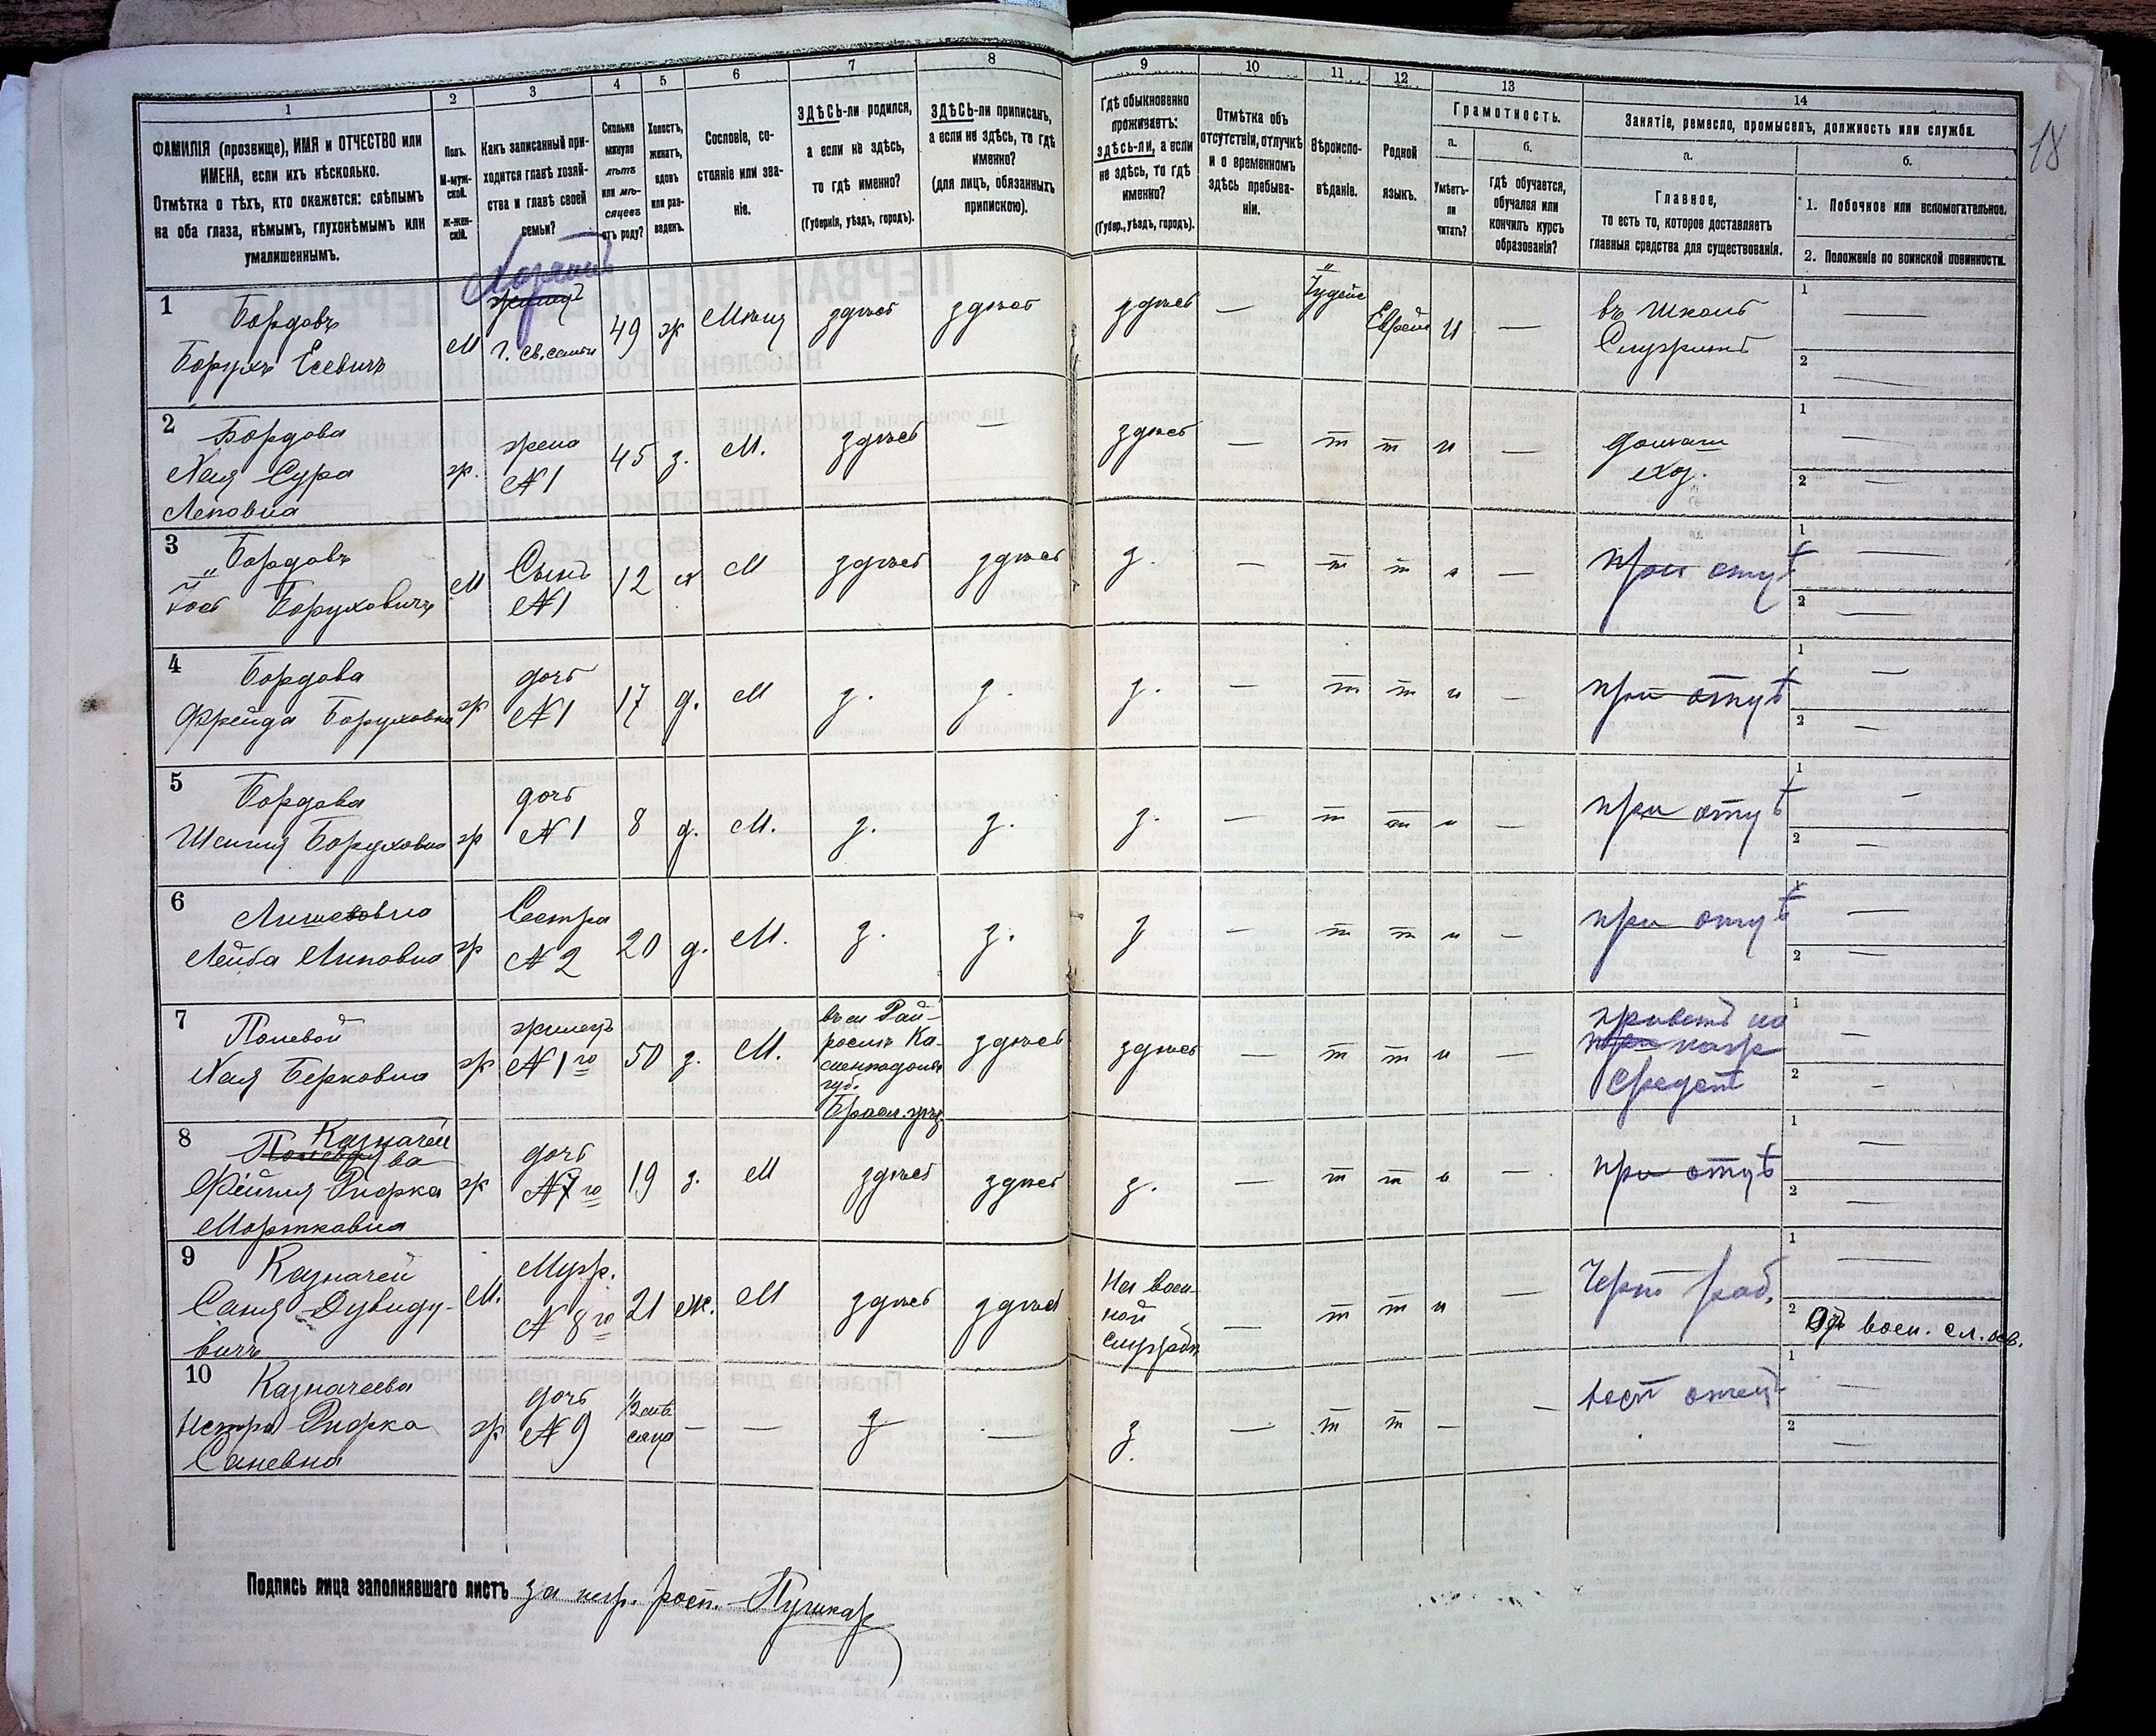 1 2 3 4 5 6 7 8 9 10 11 12 13 14
18
ФАМИЛІЯ (прозвище), ИМЯ и ОТЧЕСТВО или
ИМЕНА, если ихъ нѣсколько.
Отмѣтка о тѣхъ, кто окажется: слѣпымъ
на оба глаза, нѣмымъ, глухонѣмымъ или
умалишеннымъ.
Полъ.
М-муж-
ской.
Ж-жен-
скій.
Какъ записанный при-
ходится главѣ хозяй-
ства и главѣ своей
семьи?
Сколько
минуло
лѣтъ
или мѣ-
сяцевъ
отъ роду?
Холостъ,
женатъ,
вдовъ
или раз-
веденъ.
Сословіе, со-
стояніе или зва-
ніе.
ЗДѢСЬ-ли родился,
а если не здѣсь,
то гдѣ именно?
(Губернія, уѣздъ, городъ).
ЗДѢСЬ-ли приписанъ,
а если не здѣсь, то гдѣ
именно?
(для лицъ, обязанныхъ
припискою).
Гдѣ обыкновенно
проживаетъ:
здѣсь-ли, а если
не здѣсь, то гдѣ
именно?
(Губер., уѣздъ, городъ).
Отмѣтка объ
отсутствіи, отлучкѣ
и о временномъ
здѣсь пребыва-
ніи.
Вѣроиспо-
вѣданіе.
Родной
языкъ.
Грамотность.
а.
Умѣетъ-
ли
читать?
б.
гдѣ обучается,
обучался или
кончилъ курсъ
образованія?
Занятіе, ремесло, промыселъ, должность или служба.
а.
Главное,
то есть то, которое доставляетъ
главныя средства для существованія.
б.
1. Побочное или вспомогательное.
2. Положеніе по воинской повинности.
1
Бордовъ
Борухъ Есевичъ
М
г. св. семьи
49 ж
здѣсь здѣсь здѣсь —
— 
въ школѣ
1
2
2
Бордова
Хая Сура
ж.
жена
№ 1
45 з. М. здѣсь — здѣсь — т т н —
1
2
3
Бордовъ
Боруховичъ
М
Сынъ
№ 1
12 х М здѣсь здѣсь з. — т т —
при отцѣ
1
2
4
Бордова
Фрейда Боруховна
ж
дочь
№ 1
17 д. М з. з. з. — т т н —
при отцѣ
1
2
5
Бордова
Боруховна
ж
дочь
№ 1
8 д. М. з. з. з. — т т н —
при отцѣ
1
2
6
Лейба Липовна
ж
Сестра
№ 2
20 д. М. з. з. з — т т н —
при отцѣ
2
7
Полевой
Хая Берковна
ж
жилецъ
№ 1го
50 з. М.
губ.
здѣсь здѣсь — т т н —
1
2
8
Казначей
ва
Рифка
Мортковна
ж
дочь
№ 7го
19 з. М здѣсь здѣсь з. — т т н —
при отцѣ
1
2
9
Казначей
Саня Дувиду-
вичъ
М.
Муж.
№ 8го
21 ж. М здѣсь здѣсь
На воен-
ной
службѣ
— т т н —
Черн. раб.
1
2 воен. сл.
10
Казначеева
Рифка
Саневна
ж
дочь
№ 9
— — з — з. — т т — —
1
2
Подпись лица заполнявшаго листъ за негр. росп. Пушкарь